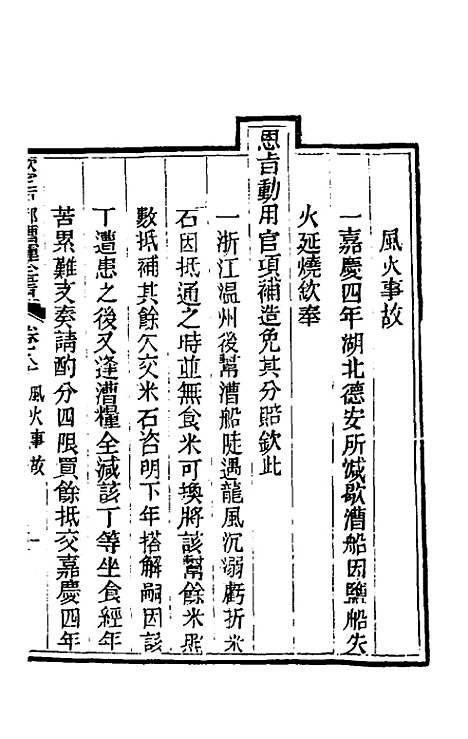 風火事故
一嘉慶四年湖北德安所減歇漕船因鹽船失
火延燒欽奉
恩旨動用官項補造免其分賠欽此
一浙江温州後幫漕船陡遇龍風沉溺虧折米
石因抵通之時並無食米可換將該幫餘米照
數抵補其餘欠交米石咨明下年搭解嗣因該
丁遭患之後又逢漕糧全減該丁等坐食經年
苦累難支奏請酌分四限買餘抵交嘉慶四年
欽定戶部漕運全書 卷 風火事故 一